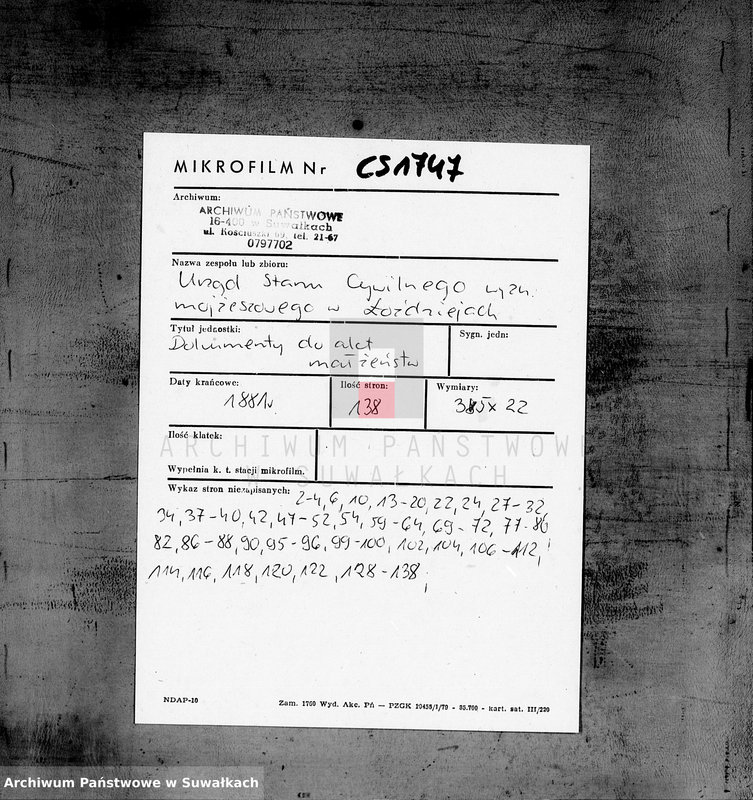 MIKROFILM Nr CS1747
Archiwum:
ARCHIWUM PAŃSTWOWE
16-400 w Suwałkach
ul. Kościuszki 69. tel. 21-67
0797702
Nazwa zespołu lub zbioru:
Urząd Stanu Cywilnego wyzn.
mojżeszowego w Łoździejach
Tytuł jednostki:
Dokumenty do akt
małżeństw
Sygn. jedn:
Daty krańcowe:
1881r.
Ilość stron:
138
Wymiary:
35x22
Ilość klatek:
Wypełnia k. t. stacji mikrofilm.
ARCHIWUM PAŃSTWOWE
W SUWAŁKACH
Wykaz stron niezapisanych: 2-4, 6, 10, 13-20, 22, 24, 27-32,
34, 37-40, 42, 47-52, 54, 59-64, 69-72, 77-80
82, 86-88, 90, 95-96, 99-100, 102, 104, 106-112,
114, 116, 118, 120, 122, 128-138;
NDAP-10
Zam. 1760 Wyd. Akc. Pń — PZGK 19455/I/79 - 85.700 - kart. sat. III/220
Archiwum Państwowe w Suwałkach